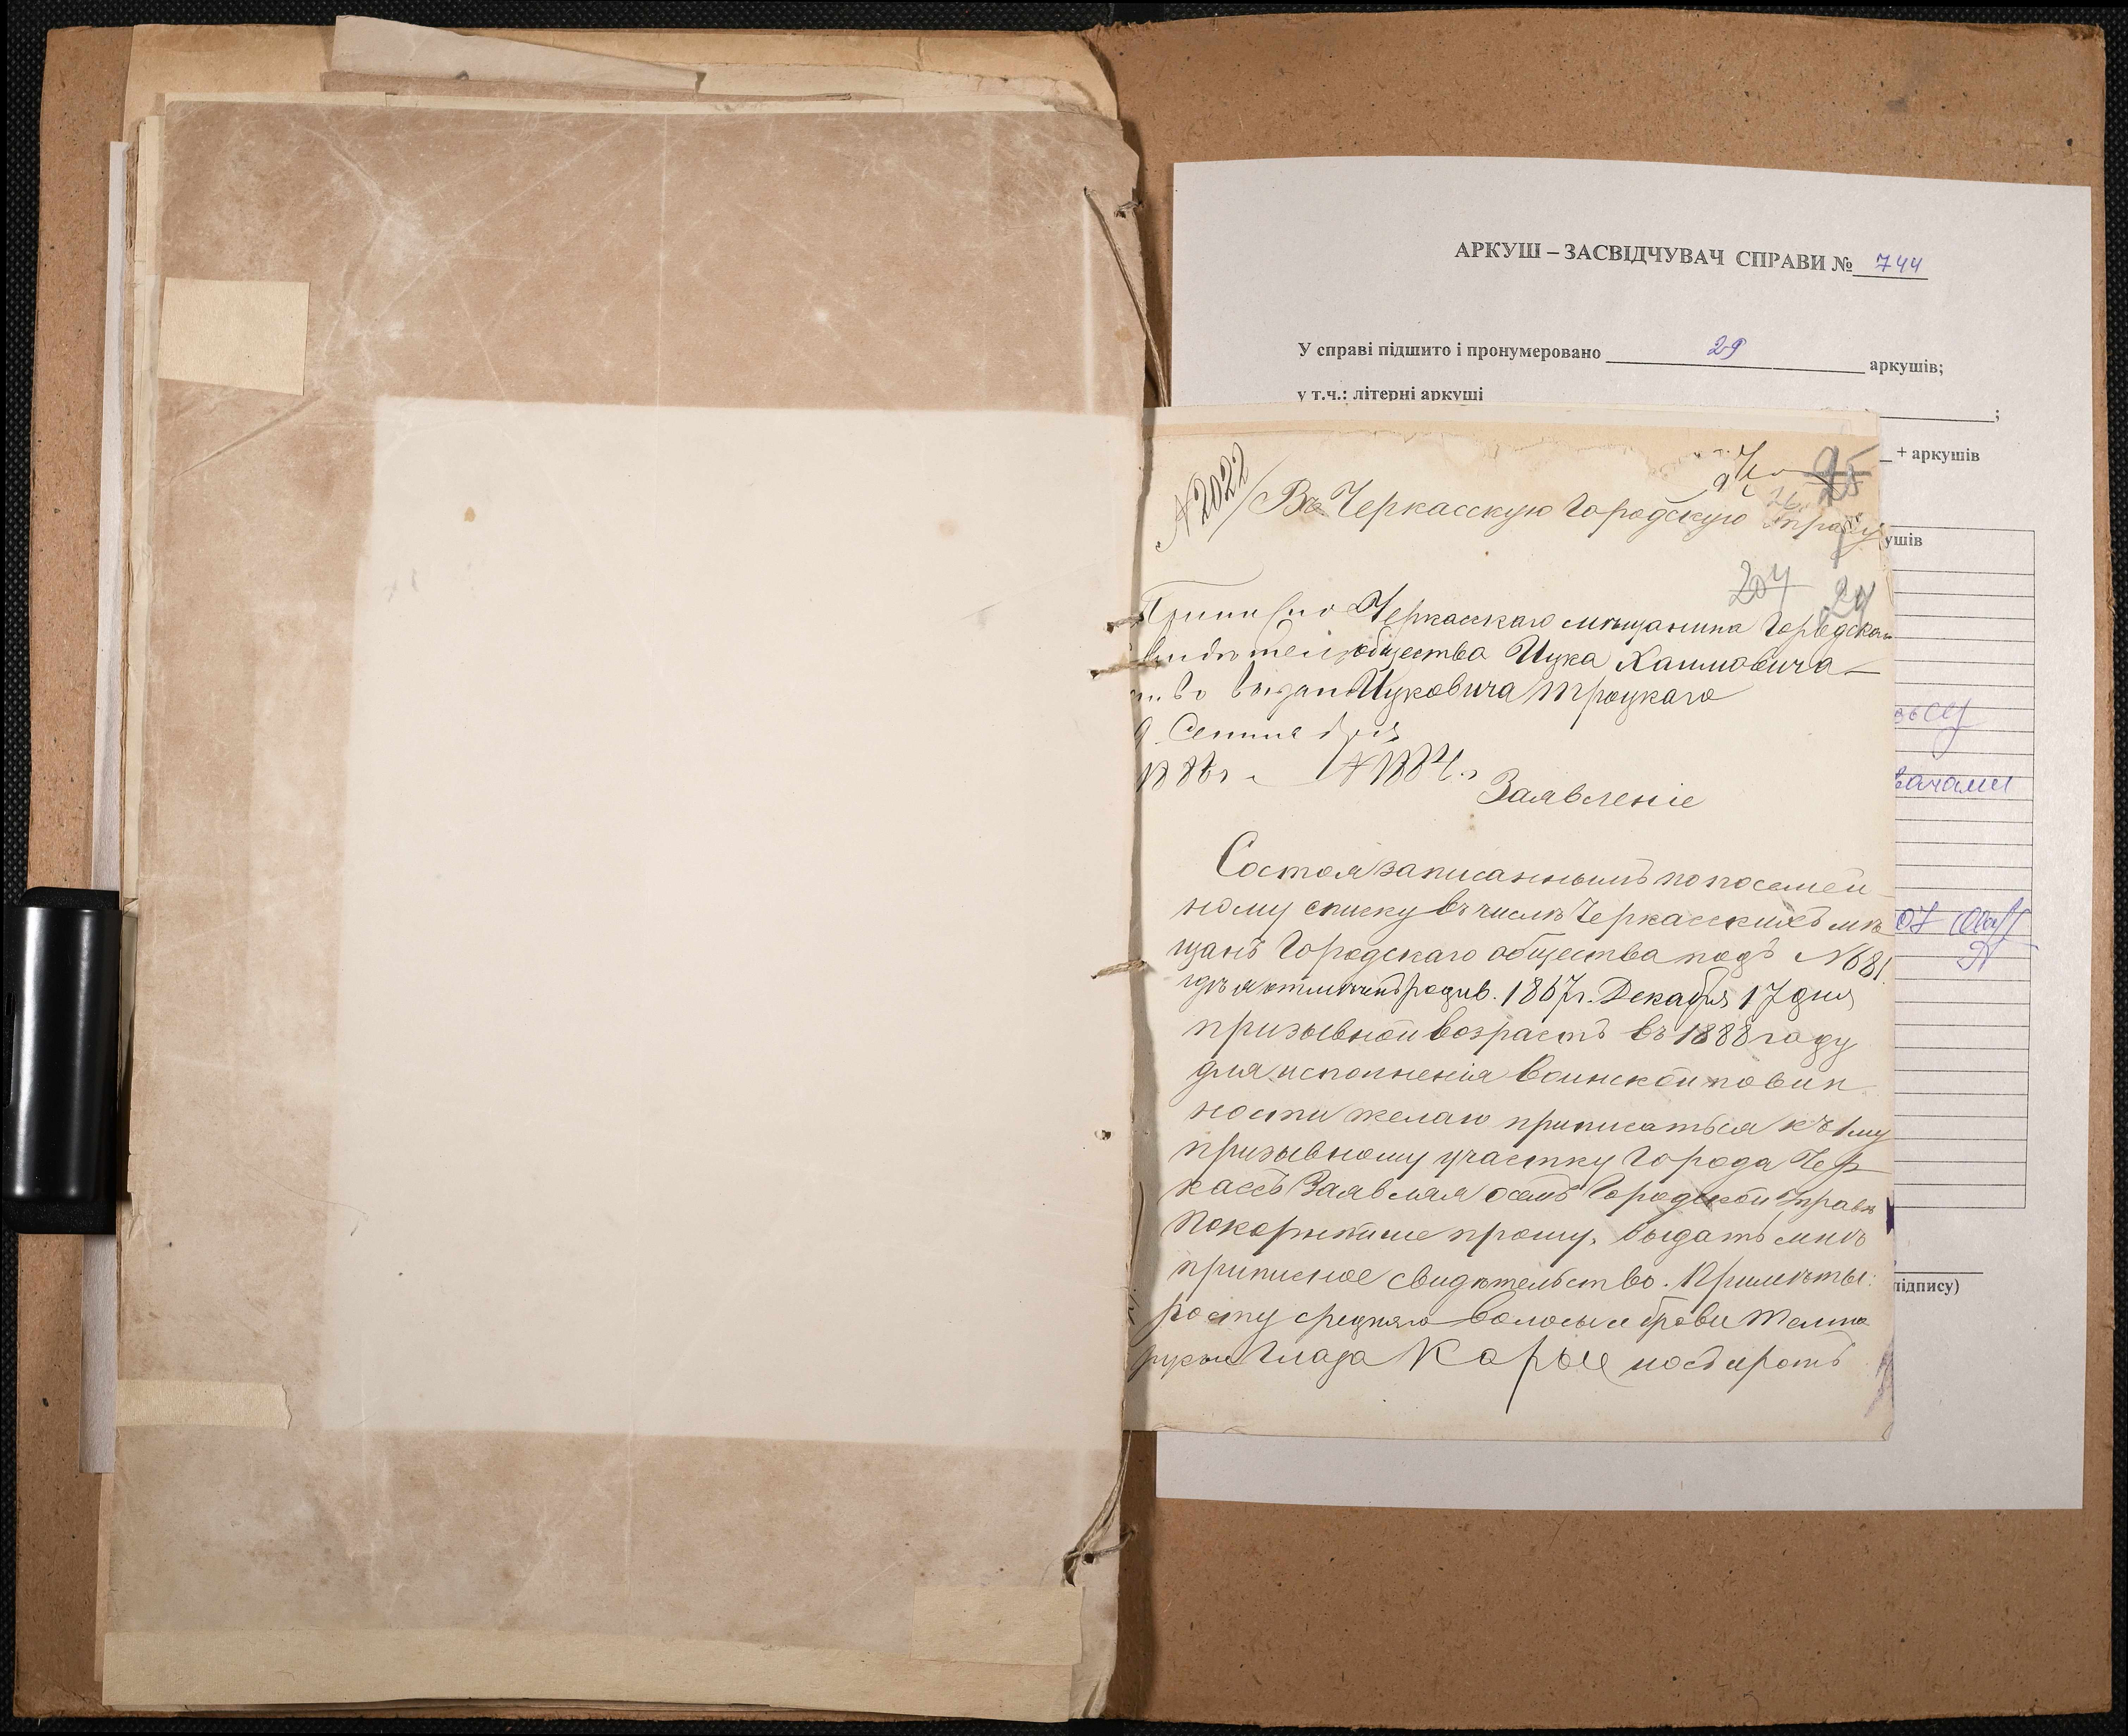 АРКУШ – ЗАСВІДЧУВАЧ СПРАВИ № 744
У справі підшито і пронумеровано 29 аркушів;
у т.ч.: літерні аркуші ;
+ аркушів
ушів
вачами
07
підпису)
№ 2022
25
26
Въ Черкасскую Городскую Управу
204 29
Черкасскаго мѣщанина Городска
общества Ицка Хаимовича
выдан Ицковича Троцкаго
9 Сентября
188 г. № 1884
Заявленіе
Состоя записаннымъ по посемей
ному списку въ числѣ Черкасскихъ мѣ
щанъ Городскаго общества подъ № 681
гдѣ я отмѣченъ родив. 1867 г. Декабря 17 дня
призывной возрастъ въ 1888 году
для исполненія воинской повин
ности желаю приписаться къ 1му
призывному участку Города Чер
кассъ Заявляя о семъ Городской Управѣ
Покорнѣйше прошу, выдать мнѣ
приписное свидѣтельство. Примѣты:
росту средняго Волосы и брови темно
русые Глаза Карые носъ и ротъ